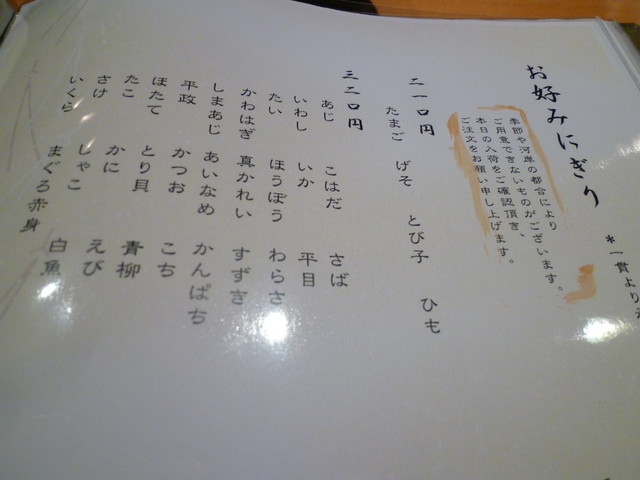 お好みにぎり
*一貫より
季節や河岸の都合により
ご用意できないものがございます。
本日の入荷をご確認頂き、
ご注文をお願い申し上げます。
二一〇円
たまご げそ とび子 ひも
三二〇円
あじ こはだ さば
いわし いか 平目
たい ほうぼう わらさ
かわはぎ 真かれい すずき
しまあじ あいなめ かんぱち
平政 かつお こち
ほたて とり貝 青柳
たこ かに えび
さけ しゃこ 白魚
いくら まぐろ赤身